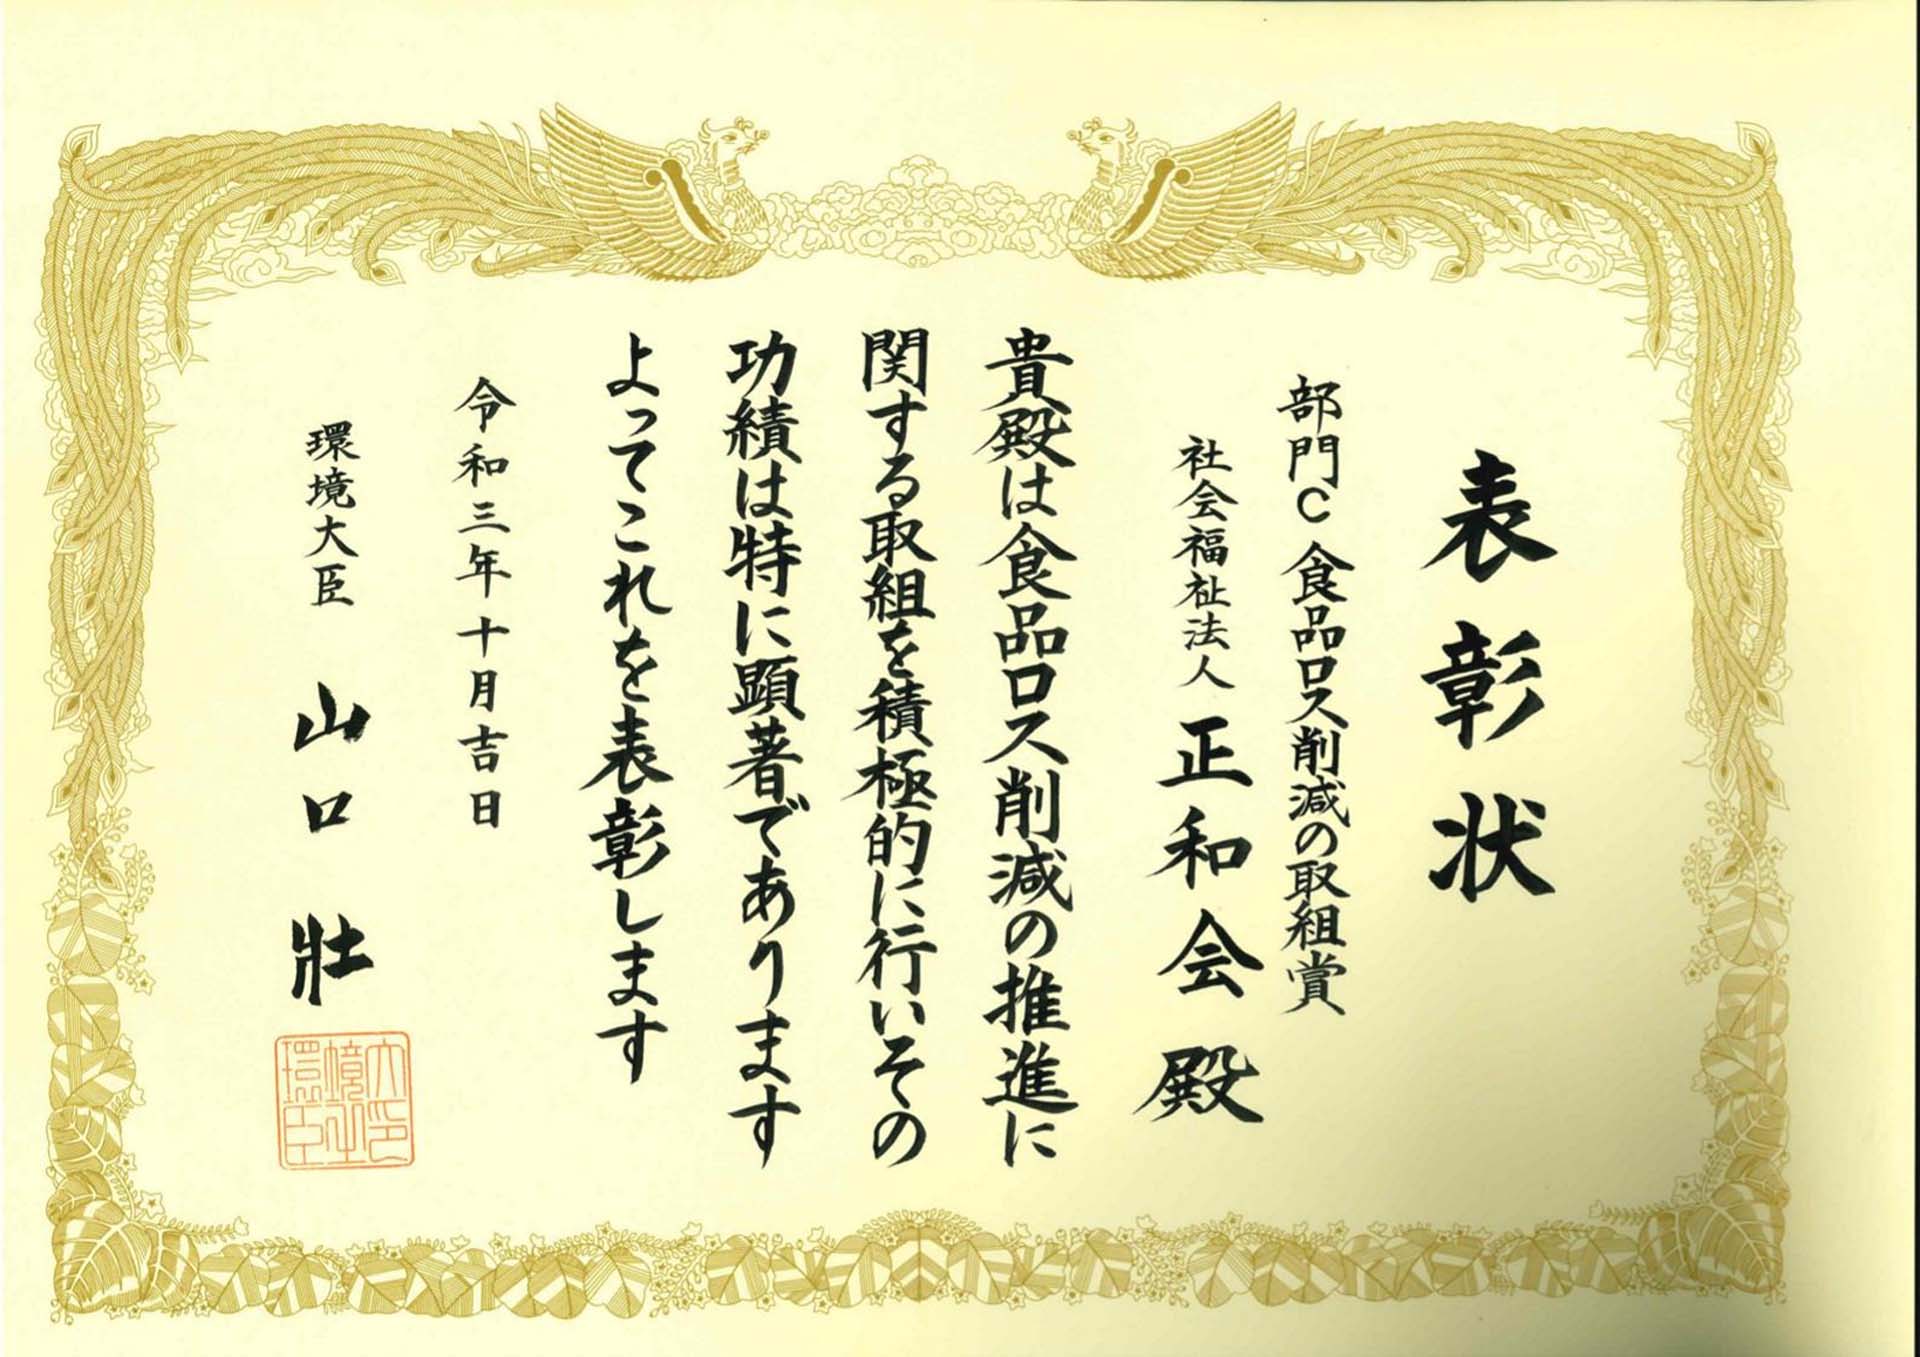 表彰状
部門C 食品ロス削減の取組賞
社会福祉法人 正和会 殿
貴殿は食品ロス削減の推進に
関する取組を積極的に行いその
功績は特に顕著であります
よってこれを表彰します
令和三年十月吉日
環境大臣 山口 壯
環境大臣之印